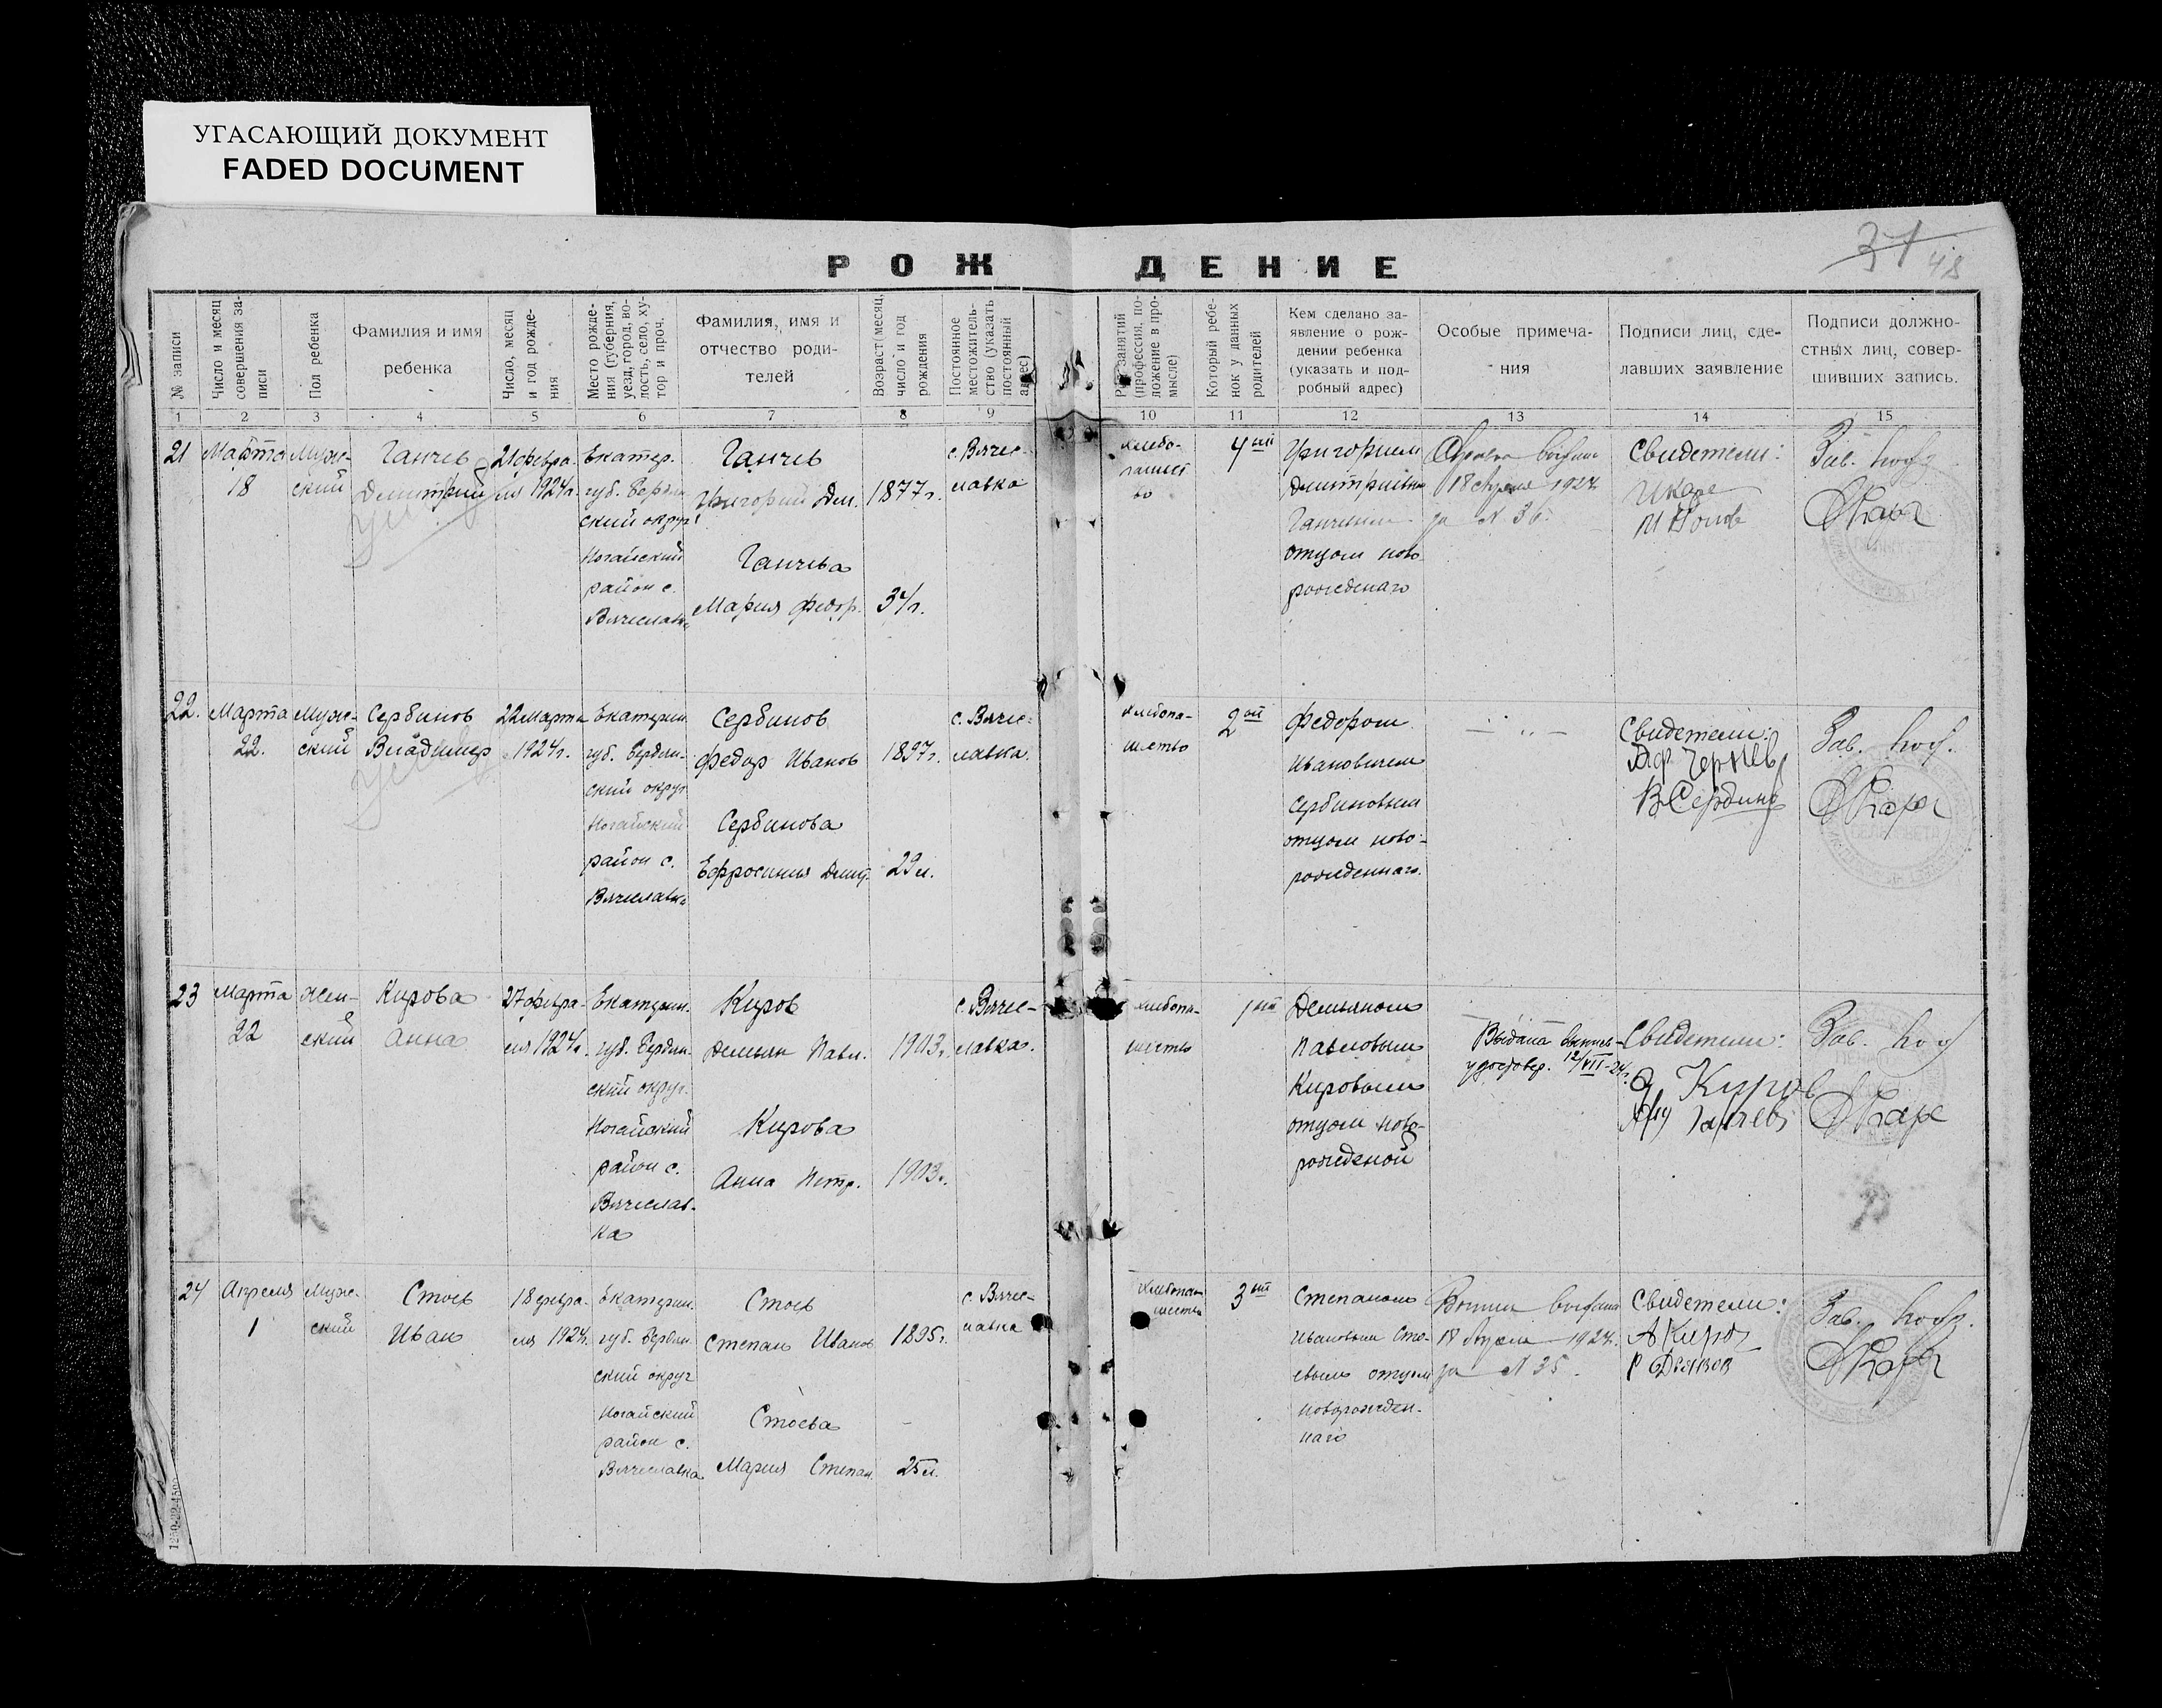 УГАСАЮЩИЙ ДОКУМЕНТ
FADED DOCUMENT
48
РОЖДЕНИЕ
№ записи
Число и месяц совершения записи
Пол ребенка
Фамилия и имя ребенка
Число, месяц и год рождения
Место рождения (губерния, уезд, город, волость, село, хутор и проч.
Фамилия, имя и отчество родителей
Возраст (месяц, число и год рождения
Постоянное местожительство (указать постоянный адрес)
занятий (профессия, положение в промысле)
Который ребенок у данных родителей
Кем сделано заявление о рождении ребенка (указать и подробный адрес)
Особые примечания
Подписи лиц, сделавших заявление
Подписи должностных лиц, совершивших запись.
1 2 3 4 5 6 7 8 9 10 11 12 13 14 15
21
Марта
18
Муж-
ский
Ганчев
Дмитрий
21 февра-
ля 1924 г.
Екатер.
губ. Бердян.
ский округ
Ногайский
район с.
Вячеславка
Ганчев
Григорий Дм.
1877 г.
Ганчева
Мария Федор.
34 г.
с. Вячес-
лавка
хлебо-
пашест
во
4 ый
Григорием
Дмитриевым
Ганчевым
отцом ново
рожденаго
18 Апреля 1924
за № 36.
Свидетели:
Зав.
22.
Марта
22.
Муж-
ский
Сербинов
Владимир
22 марта
1924 г.
Екатерин.
губ. Бердян-
ский округ
Ногайский
район с.
Вячеславка
Сербинов
Федор Иванов
1897 г.
Сербинова
Ефросиния Дмит.
29 л.
с. Вячес-
лавка.
хлебопа-
шество
2 ой
Федором
Ивановичем
Сербиновым
отцом ново-
рожденнаго.
— „ —
Свидетели:
В Сербинов
Зав.
23
Марта
22
Жен-
ский
Кирова
Анна
27 февра-
ля 1924 г.
Екатерин.
губ. Бердян.
ский округ.
Ногайский
район с.
Вячеслав-
ка
Киров
Демьян Павл.
1903 г.
Кирова
Анна Петр.
1903 г.
с. Вячес-
лавка.
хлебопа-
шество
1 ый
Демьяном
Павловым
Кировым
отцом ново-
рожденой
Выдана
удостовер. 12/VII-24 г.
Свидетели:
Д Киров
Ганчев
Зав.
24
Апреля
1
Муж-
ский
Стоев
Иван
18 февра-
ля 1924 г.
Екатерин.
губ. Бердян.
ский округ
Ногайский
район с.
Вячеславка
Стоев
Степан Иванов
1895 г.
Стоева
Мария Степан.
25 л.
с. Вячес-
лавка
хлебопа-
шество
3 ий
Степаном
Ивановым Сто-
евым отцом
новорожден-
наго
18 Апреля 1924 г.
за № 35.
Свидетели:
А Киров
Зав.